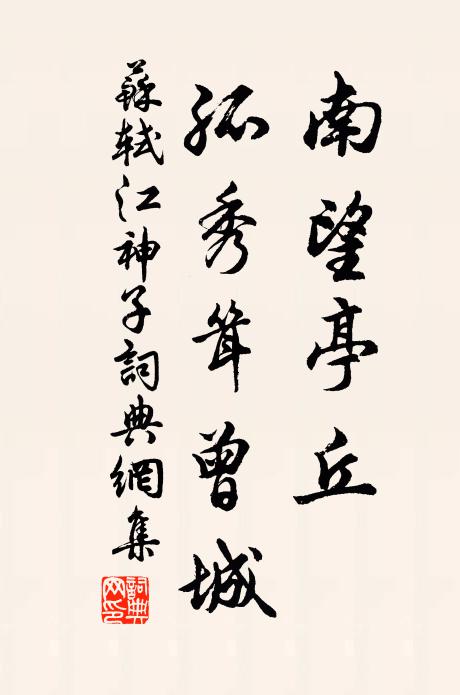 南望亭丘
孤秀耸曾城
蘇軾江神子詞典網集
詞典
网印